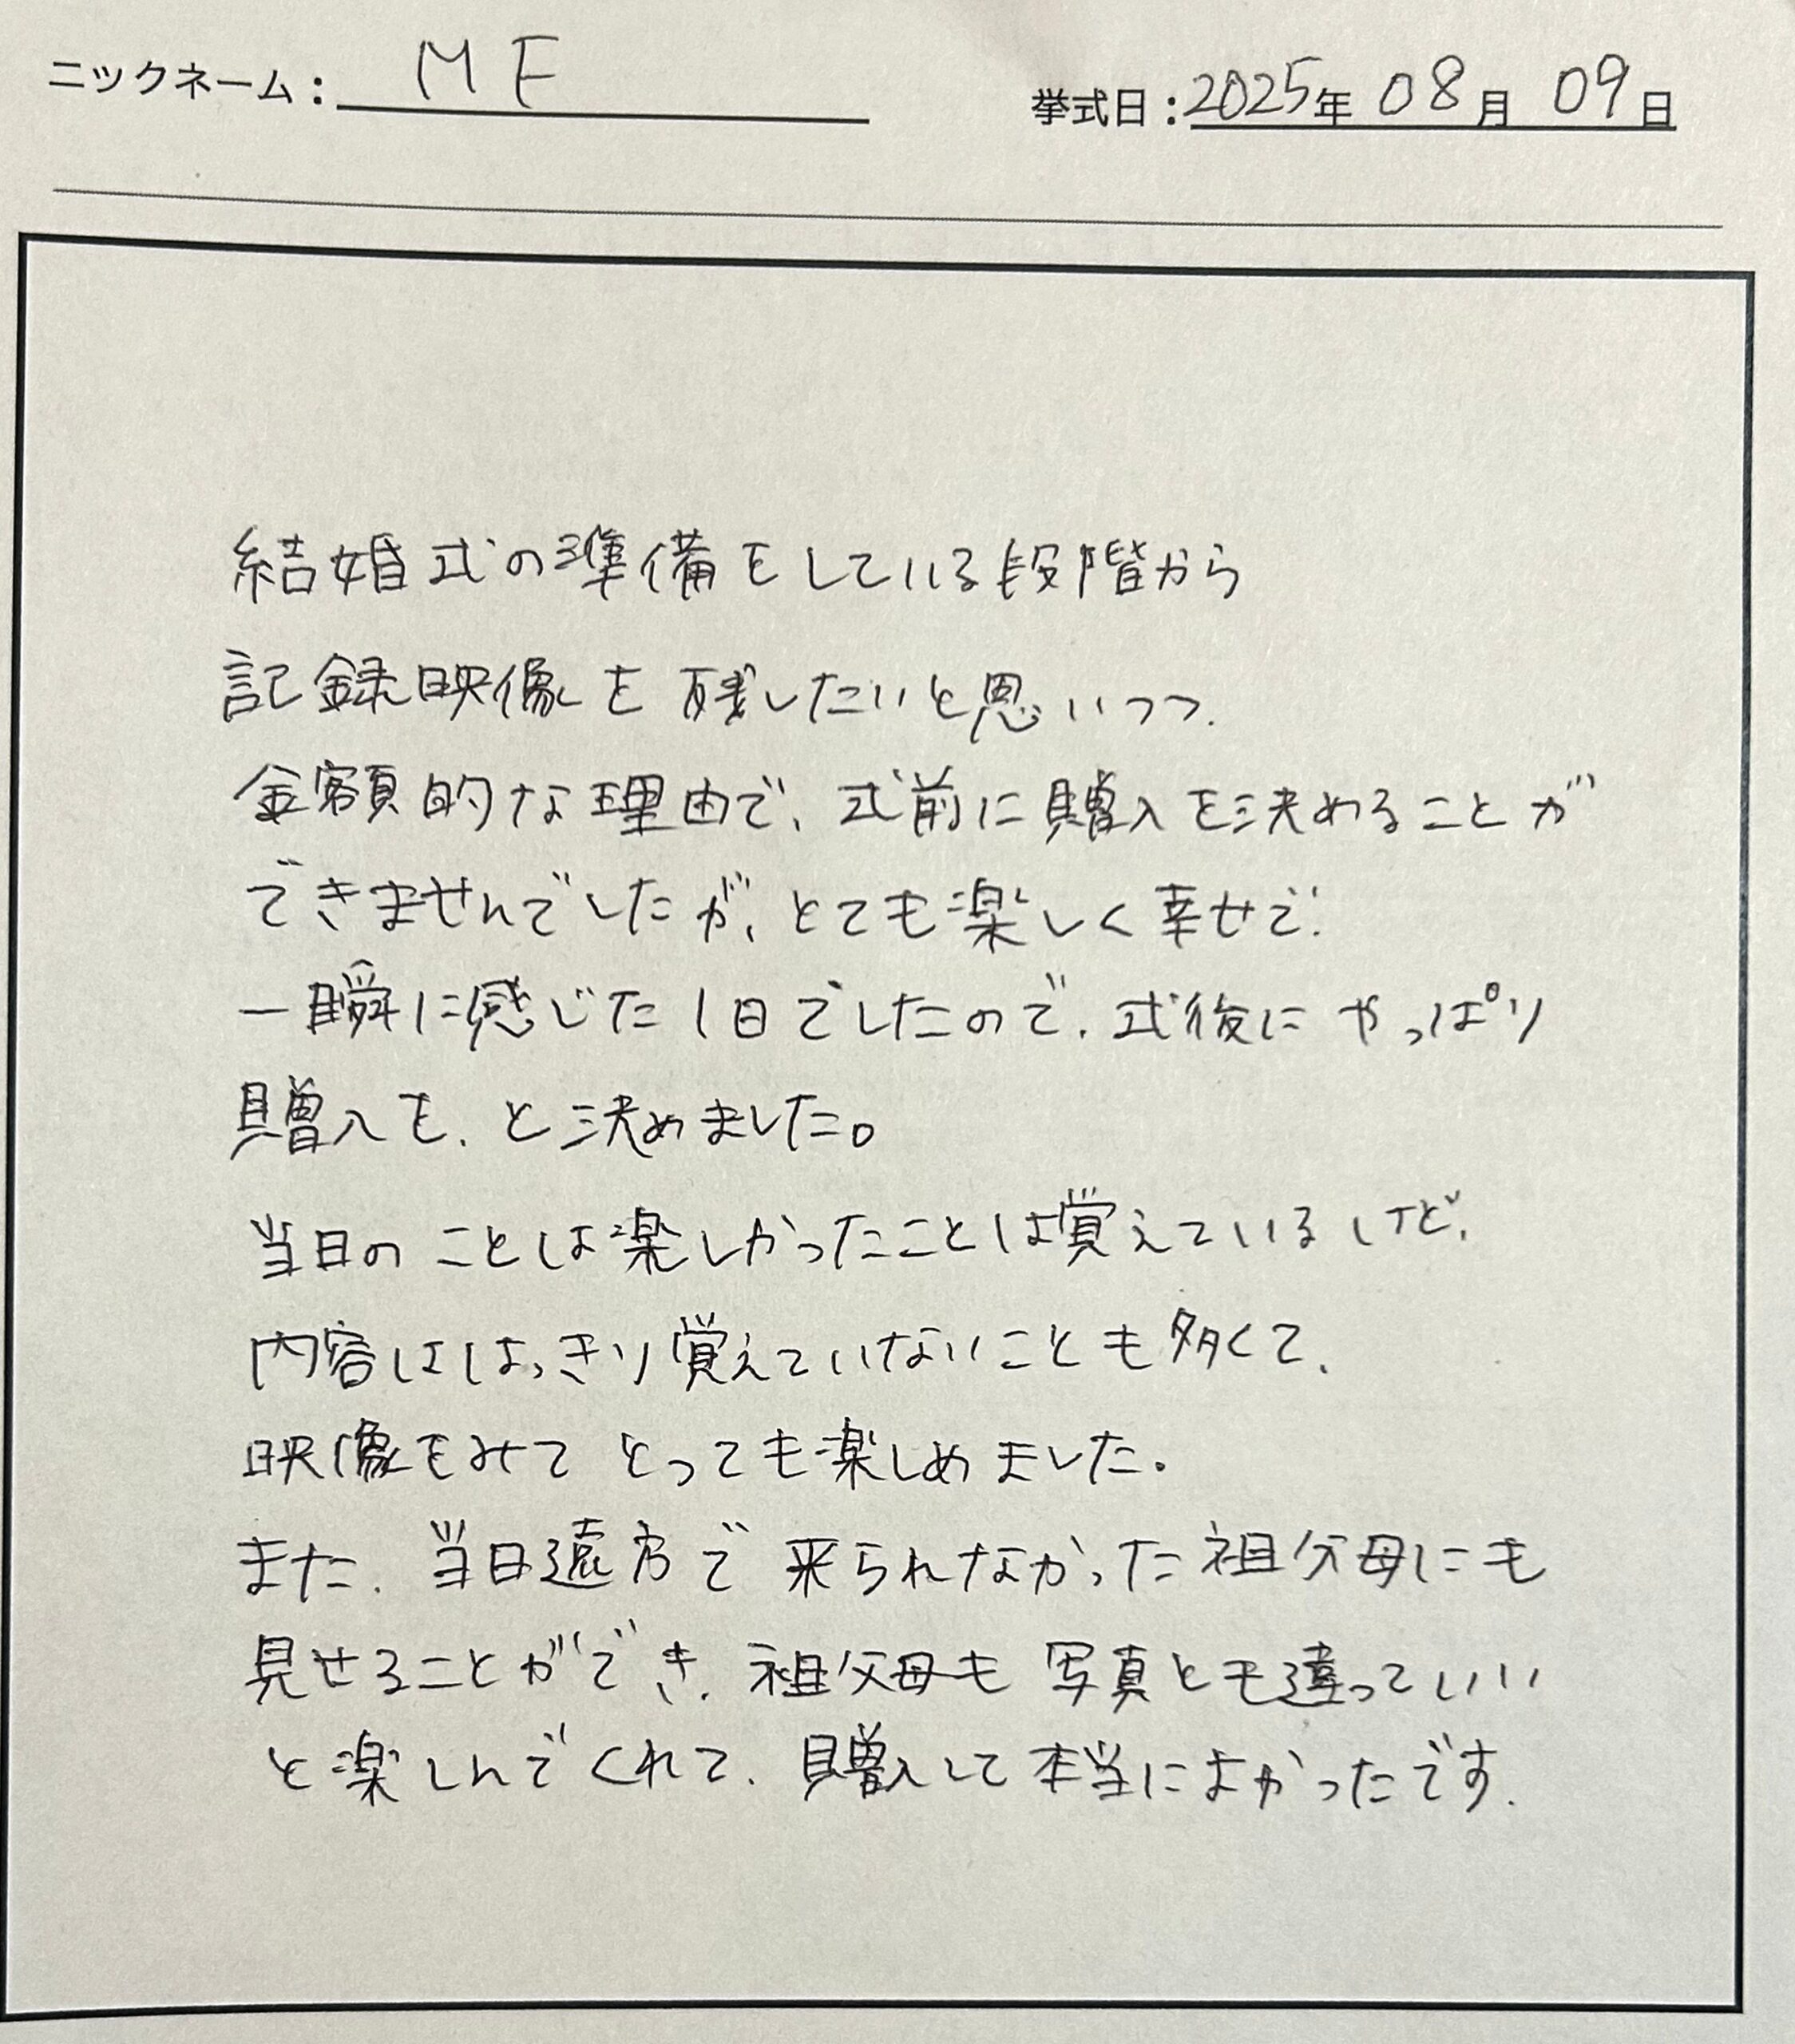 ニックネーム：MF
挙式日：2025年08月09日
結婚式の準備をしている段階から
記録映像を残したいと思いつつ、
金額的な理由で、式前に贈入を決めることが
できませんでしたが、とても楽しく幸せで、
一瞬に感じた1日でしたので、式後にやっぱり
贈入を、と決めました。
当日のことは楽しかったことは覚えているけど、
内容ははっきり覚えていないことも多くて、
映像をみてとっても楽しめました。
また、当日遠方で来られなかった祖父母にも
見せることができ、祖父母も写真とも違っていい
と楽しんでくれて、贈入して本当によかったです。